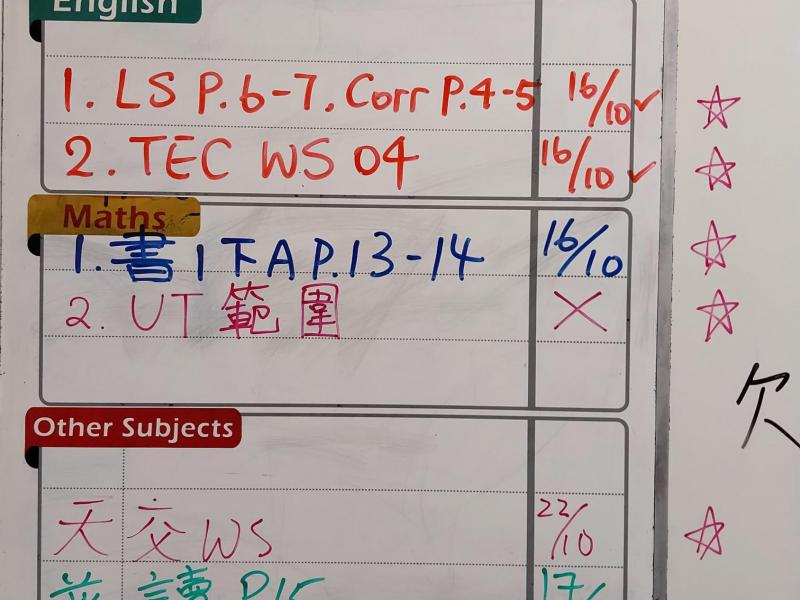 English
1. LS P.6-7, Corr P.4-5 16/10 ✓ ☆
2. TEC WS 04 16/10 ✓ ☆
Maths
1. 書1下A P.13-14 16/10 ☆
2. UT 範圍 × ☆
欠
Other Subjects
天 交 WS 22/10 ☆
讀 P.15 17/